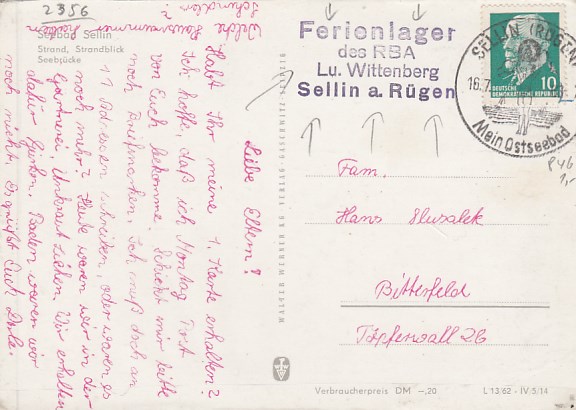 2356
Seebad Sellin
Strand, Strandblick
Seebrücke
Ferienlager
des RBA
Lu. Wittenberg
Sellin a. Rügen
SELLIN (RÜGEN)
16.7.
Mein Ostseebad
DEUTSCHE
DEMOKRATISCHE REPUBLIK
10
P46
1,-
Liebe Eltern!
Habt Ihr meine 1. Karte erhalten?
Ich hoffe, daß ich Montag Post
von Euch bekomme. Schickt mir bitte
noch Briefmarken. Ich muß doch an
11 Od wem schreiben, oder waren es
noch mehr? Heute waren wir in der
Gärtnerei, Unkraut ziehen. Wir erhalten
dafür Gurken. Baden waren wir
noch nicht. Es grüßt Euch
Welche Hausnummer haben
Fam.
Hans
Bitterfeld
Töpferwall 26
Verbraucherpreis DM -,20
L 13/62 - IV/5/14